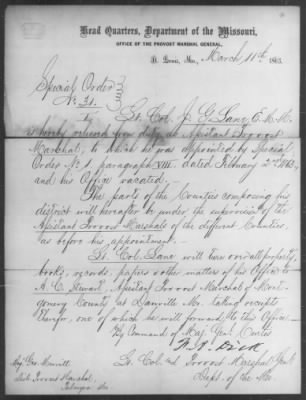 Head Quarters, Department of the Missouri,
OFFICE OF THE PROVOST MARSHAL GENERAL,
St. Louis, Mo., March 11th 1863.
Special Order
No. 31.
Lt. Col. J. G. Lane E.M.M.
is hereby relieved from duty as Assistant Provost
Marshal, to which he was appointed by Special
Order No. 1, paragraph VIII dated February 2nd 1863,
and his Office vacated.
The parts of the Counties composing his
district will hereafter be under the supervision of the
Assistant Provost Marshals of the different Counties,
as before his appointment.
Lt. Col. Lane will turn over all property,
books, records, papers & other matters of his Office to
A. C. Stewart, Assistant Provost Marshal of Mont-
gomery County at Danville Mo. taking receipts
therefor, one of which he will forward to this Office.
By Command of Maj. Genl. Curtis
F. A. Dick
Lt. Col. and Provost Marshal Genl
Dept. of the Mo.
Maj. Geo. Merrill
Dist. Provost Marshal,
Palmyra Mo